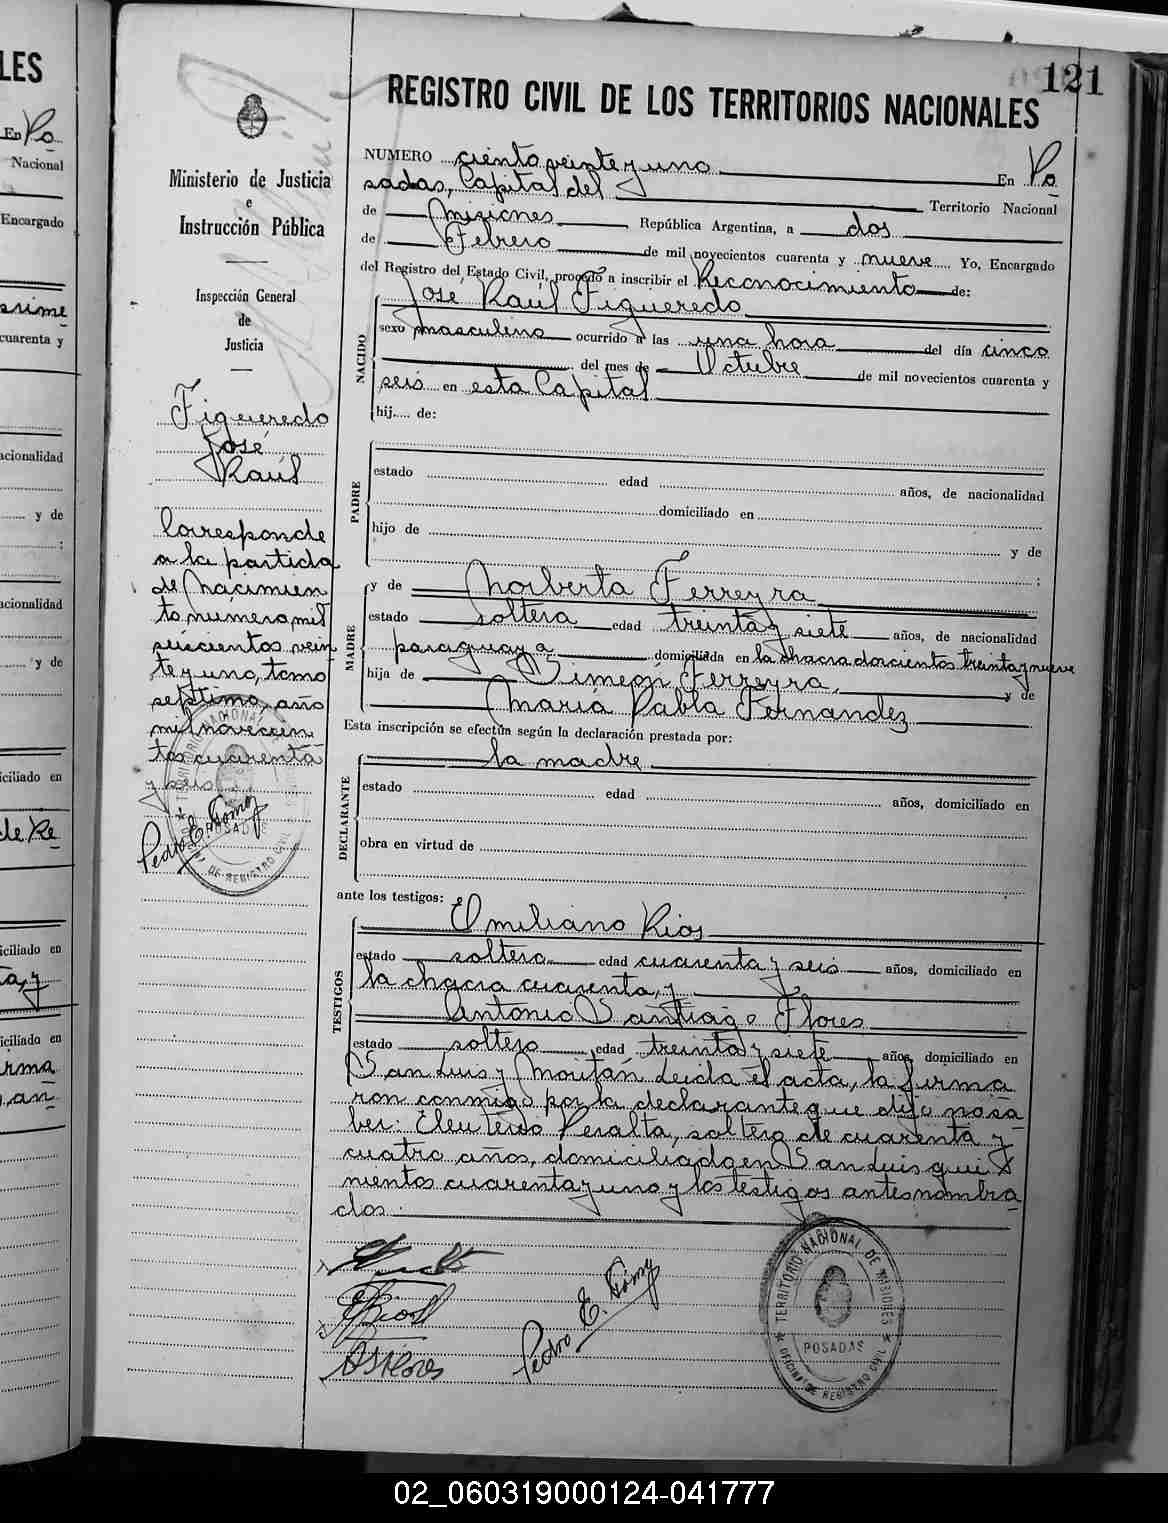 LES
En Po
Nacional
Encargado
cuarenta y
acionalidad
y de
:
acionalidad
y de
iciliado en
de Re
iciliado en
ta, y
iciliado en
irma
an
121
REGISTRO CIVIL DE LOS TERRITORIOS NACIONALES
Ministerio de Justicia
e
Instrucción Pública
Inspección General
de
Justicia
Figueredo
José
Raúl
Corresponde
a la partida
de Nacimien
to número, mil
seiscientos vein
te y uno, tomo
septimo, año
mil novecien
tos cuarenta
y seis
Pedro E. Gómez
TERRITORIO NACIONAL
POSADAS
DE REGISTRO CIVIL
NUMERO ciento veinte y uno En Po
sadas, Capital del Territorio Nacional
de Misiones República Argentina, a dos
de Febrero de mil novecientos cuarenta y nueve Yo, Encargado
del Registro del Estado Civil, procedo a inscribir el Reconocimiento de:
José Raúl Figueredo
NACIDO
sexo masculino ocurrido a las una hora del día cinco
del mes de Octubre de mil novecientos cuarenta y
seis en esta Capital
hij.... de:
PADRE
estado edad años, de nacionalidad
domiciliado en
hijo de y de
:
MADRE
y de Norberta Ferreyra
estado soltera edad treinta y siete años, de nacionalidad
paraguaya domiciliada en la chacra doscientos treinta y nueve
hija de Simeón Ferreyra, y de
María Pabla Fernandez
Esta inscripción se efectúa según la declaración prestada por:
la madre
DECLARANTE
estado edad años, domiciliado en
obra en virtud de
ante los testigos:
TESTIGOS
Emiliano Rios
estado soltero edad cuarenta y seis años, domiciliado en
la chacra cuarenta, y
Antonio Santiago Flores
estado soltero edad treinta y siete años, domiciliado en
San Luis y Moritán Leida el acta, la firma
ron conmigo por la declarante que dijo no sa
ber: Eleuterio Peralta, soltero de cuarenta y
cuatro años, domiciliado en San Luis qui
nientos cuarenta y uno y los testigos antes nombra
dos.
ERios
ASFlores
Pedro E. Gómez
TERRITORIO NACIONAL DE MISIONES
POSADAS
OFICINA DE REGISTRO CIVIL
02_060319000124-041777